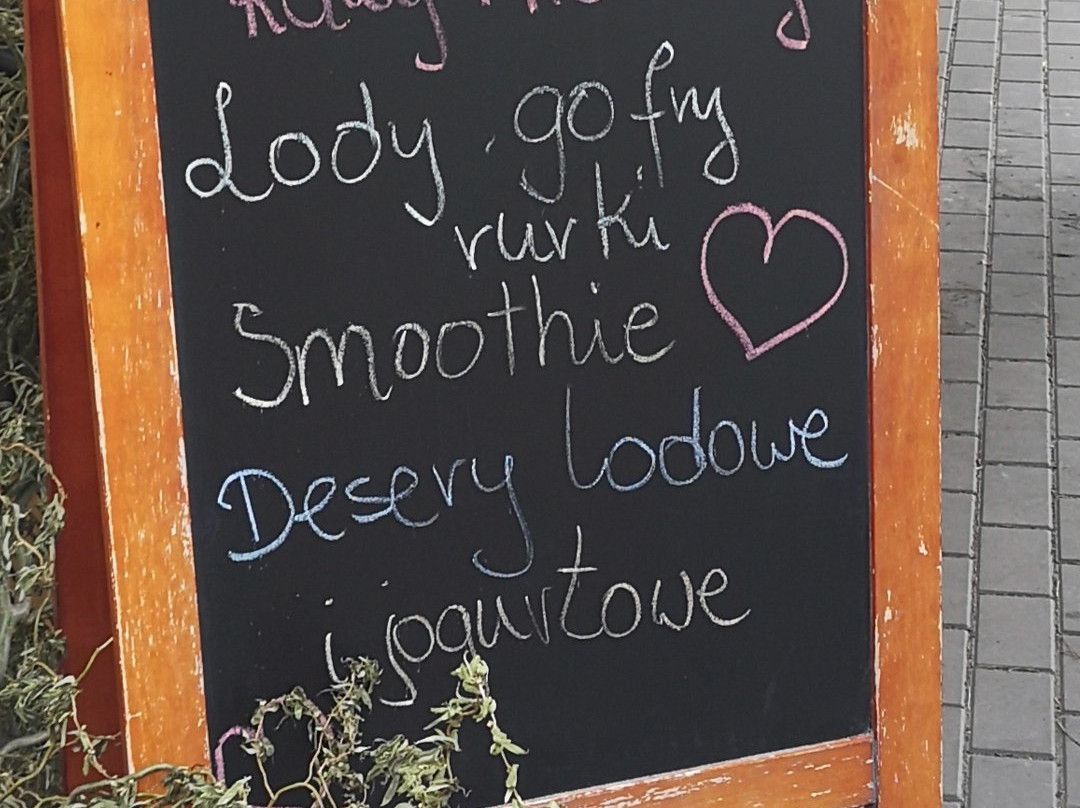 Lody, gofry
rurki
Smoothie
Desery lodowe
i jogurtowe